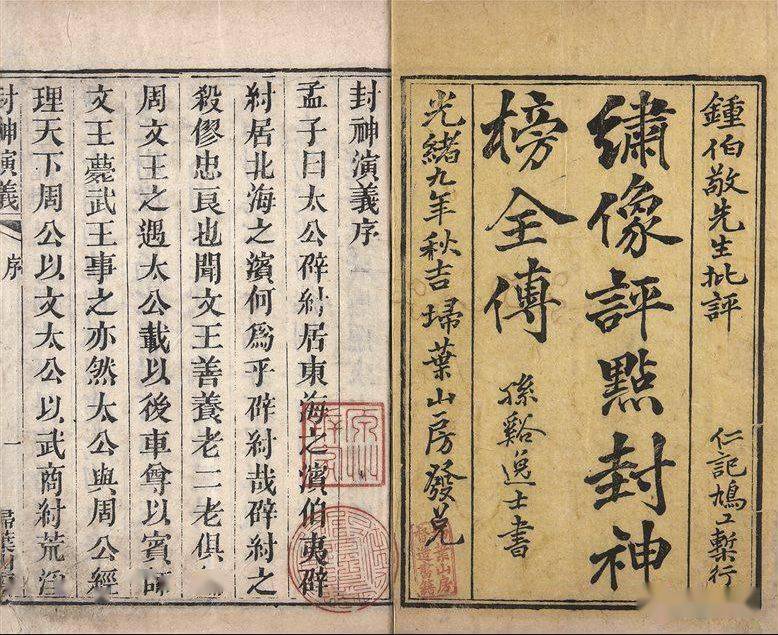 鍾伯敬先生批評
仁記鳩工槧行
繡像評點封神
榜全傳
孫谿逸士書
光緒九年秋吉埽葉山房發兌
封神演義序
孟子曰太公辟紂居東海之濱伯夷辟
紂居北海之濱何爲乎辟紂哉辟紂之
殺僇忠良也聞文王善養老二老俱
周文王之遇太公載以後車尊以賓師
文王薨武王事之亦然太公與周公經
理天下周公以文太公以武商紂荒淫
封神演義
序
一